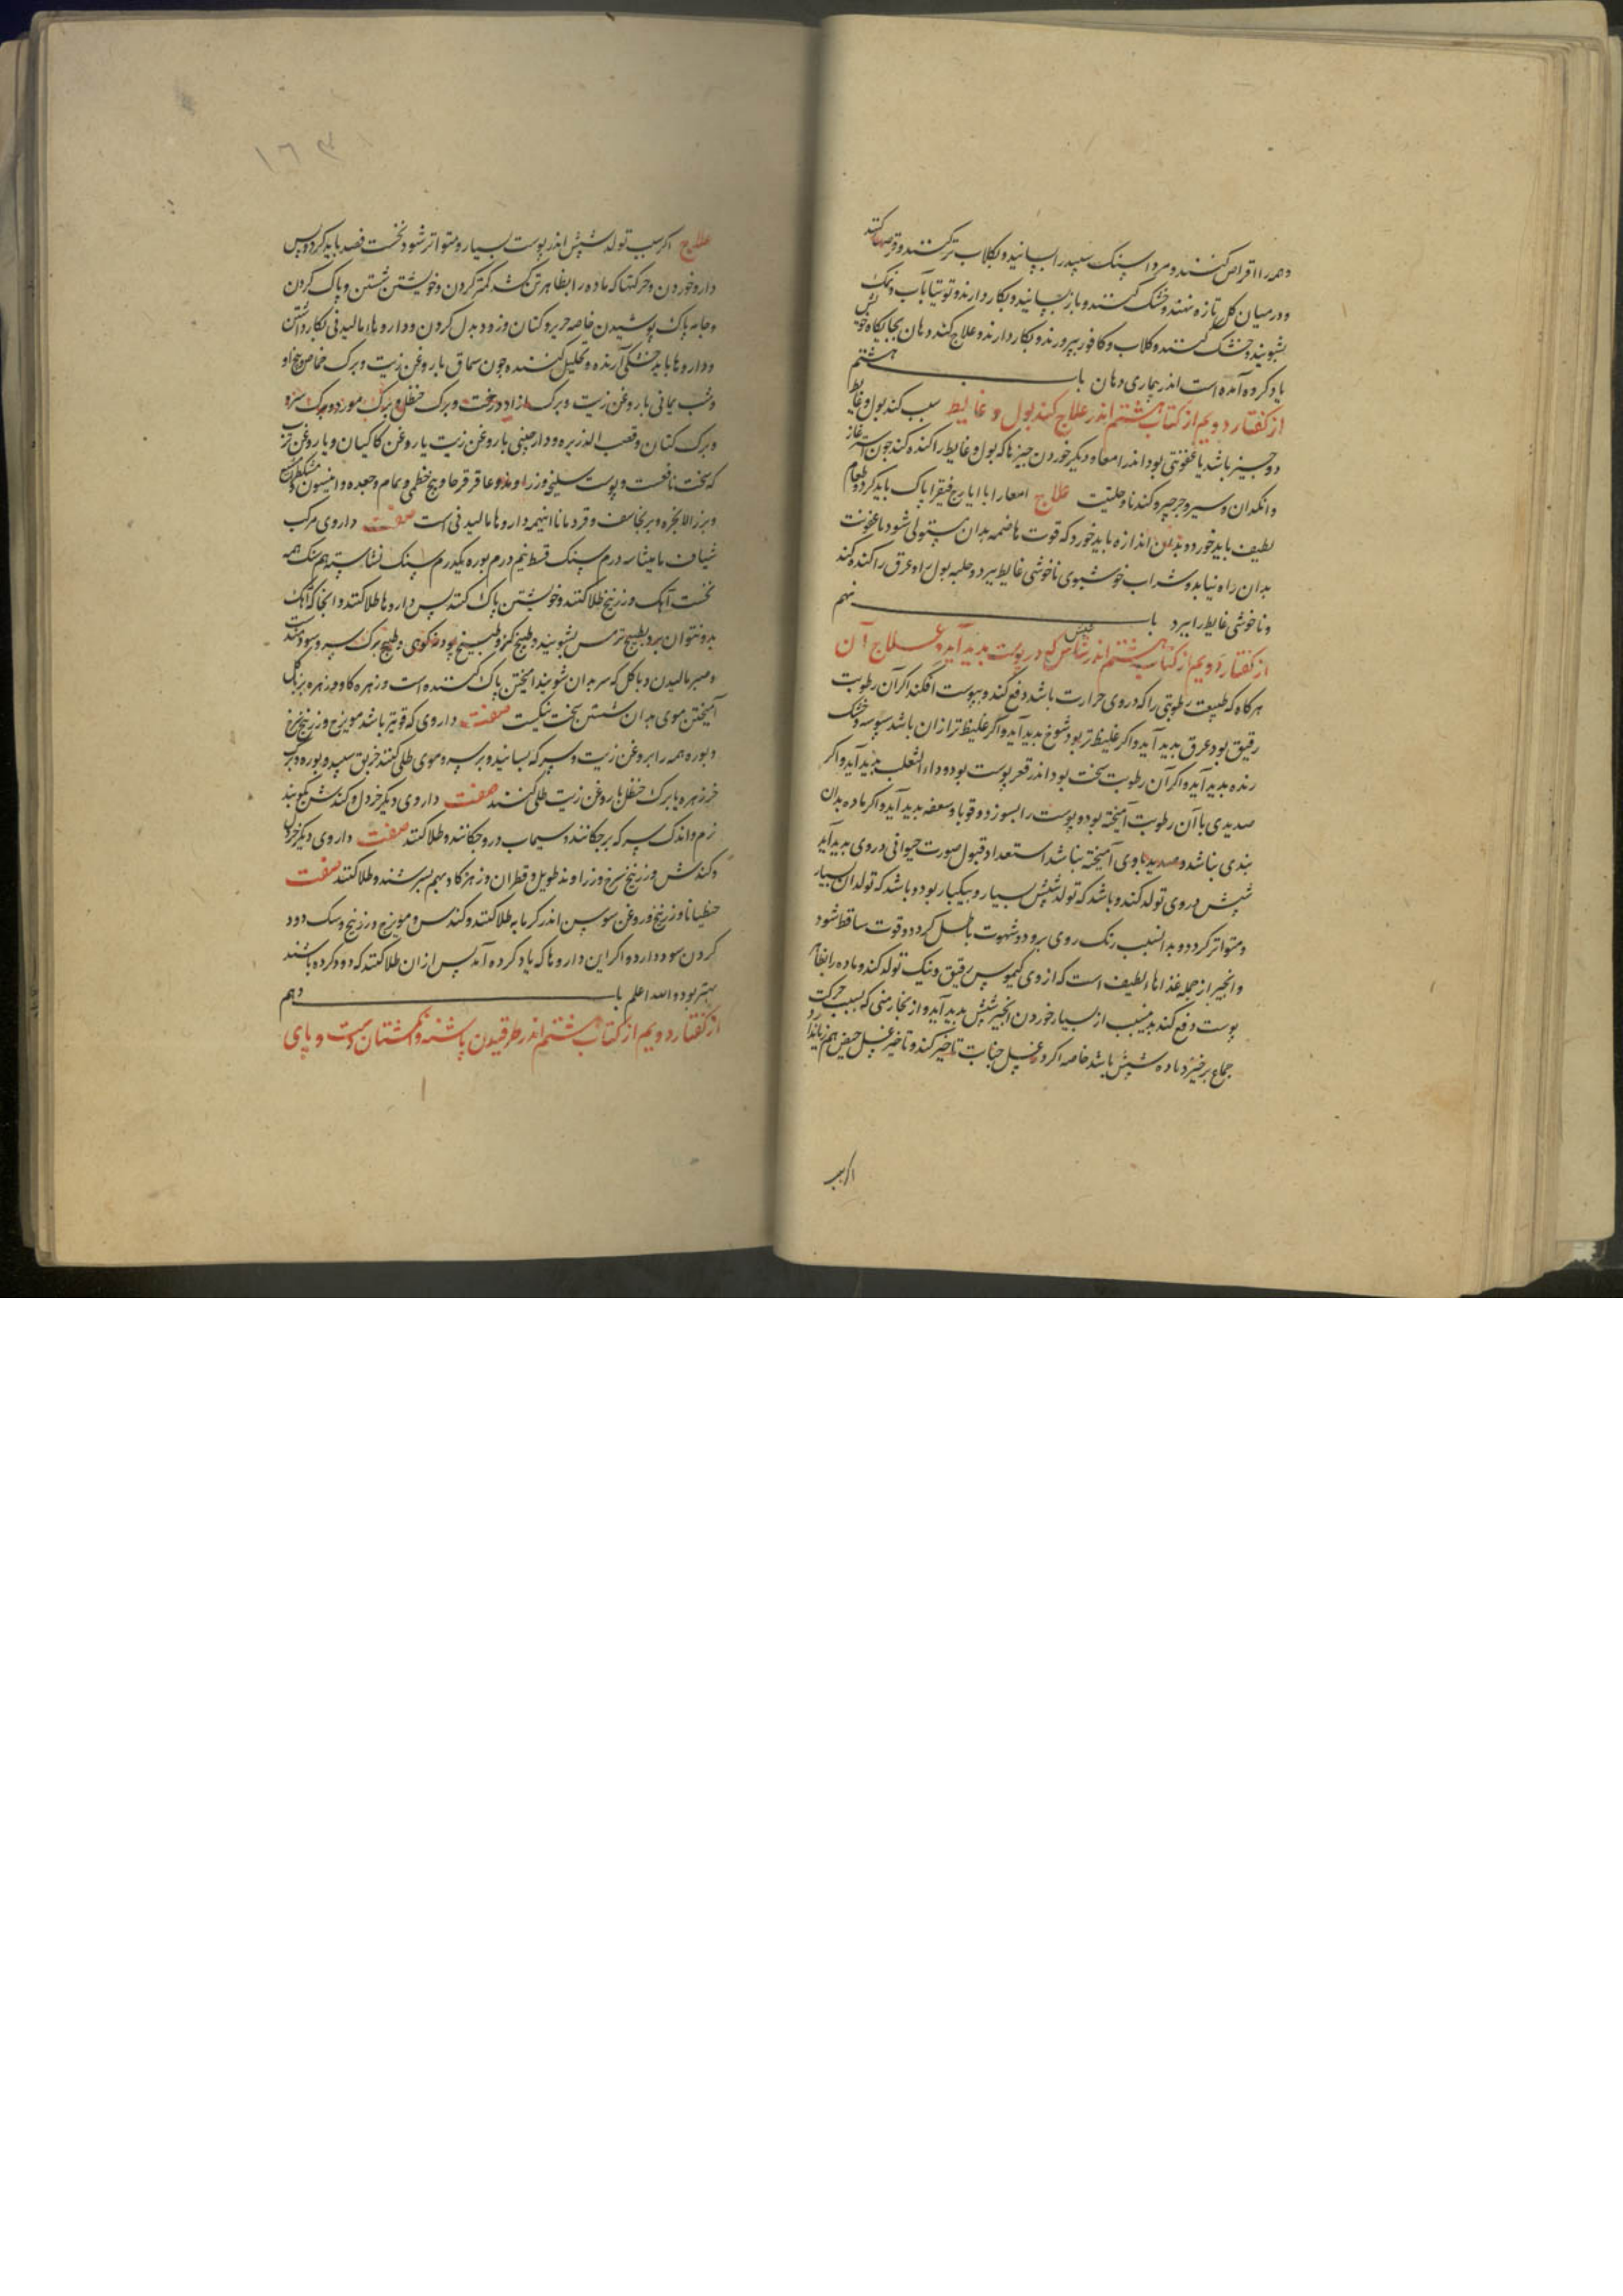 وهمه را اقراص کنند و مرداسنک سپید را بسایند و بکلاب تر کنند و قرصها کنند
و در میان کل تازه نهند و خشک کنند و باز بسایند و بکار دارند و توتیا بآب و نمک
بشویند و خشک کنند و کلاب و کافور بپرورند و بکار دارند و علاج کند دهان بجایکاه خویش
یاد کرده آمده است اندر بیماری دهان باب هشتم
از کفتار دویم از کتاب هشتم اندر علاج کند بول و غایط سبب کند بول و غایط
دو چیز باشد یا عفونتی بود اندر امعا و دیکر خوردن چیزها که بول و غایط را کنده کند چون اشترغاز
و انکدان و سیر و جرجیر و کندنا و حلتیت علاج امعا را با ایارج فیقرا پاک باید کرد و طعام
لطیف باید خورد و بدان اندازه باید خورد که قوت هاضمه بدان مستولی شود تا عفونت
بدان راه نیابد و شراب خوشبوی ناخوشی غایط ببرد و حلبه بول را و عرق را کنده کند
و ناخوشی غایط را ببرد باب نهم
از کفتار دویم از کتاب هشتم اندر شپش که در پوست بدید آید و علاج آن
هرکاه که طبیعت رطوبتی را که در وی حرارت باشد دفع کند و بپوست افکند اکر آن رطوبت
رقیق بود عرق بدید آید و اکر غلیظ تر بود شوخ بدید آید و اکر غلیظ تر از ان باشد سبوسه و خشک
رنده بدید آید و اکر آن رطوبت سخت بود اندر قعر پوست بود و داء الثعلب بدید آید و اکر
صدیدی با آن رطوبت آمیخته بود و پوست را بسوزد و قوبا و سعفه بدید آید و اکر ماده بدان
بندی بناشد و صدید با وی آمیخته بناشد استعداد قبول صورت حیوانی در وی بدید آید
شپش در وی تولد کند و باشد که تولد شپش بسیار و بیکبار بود و باشد که تولد ان بسیار
و متواتر کردد و بدانسبب رنک روی برود و شهوت باطل کردد و قوت ساقط شود
و انجیر از جمله غذاها لطیف است که از وی کیموس رقیق و نیک تولد کند و ماده را بظاهر
پوست دفع کند بدینسبب از بسیار خوردن انجیر شپش بدید آید و از بخار منی که بسبب حرکت
جماع برخیزد ماده شپش باشد خاصه اکر در غسل جنابت تاخیر کند و تاخیر غسل حیض هم زیاندارد
اکر سبب
۱۶۳
علاج اکر سبب تولد شپش اندر پوست بسیار و متواتر شود نخست فصد باید کرد و پس
دارو خوردن و حرکتها که ماده را بظاهر تن کشد کمتر کردن و خویشتن شستن و پاک کردن
و جامه پاک پوشیدن خاصه حریر و کتان و زود بدل کردن و داروها مالیدنی بکار داشتن
و داروها باید خشکی آرنده و تحلیل کننده چون سماق با روغن زیت و برک حماض و بیخ او
و شب یمانی با روغن زیت و برک ازاد درخت و برک حنظل و برک مورد و برک سرو
و برک کتان و قصب الذریره و دارچینی با روغن زیت یا روغن کاکیان و یا روغن ترب
که سخت نافعست و پوست سلیخه و زراوند و عاقرقرحا و بیخ خطمی و نمام و جعده و انیسون و مشکطرامشیع
و بزر الانجره و برنجاسف و قردمانا اینهمه داروها مالیدنی است صفت داروی مرکب
شیاف مامیثا سه درم سنک قسط نیم درم بوره یکدرم سنک نشاسته هم سنک همه
نخست آهک و زرنیخ طلا کنند و خویشتن پاک کنند پس داروها طلا کنند و انجا که آهک
بدو نتوان برد بطبیخ ترمس بشویند و طبیخ کز و طبیخ پودنه کوهی و طبیخ برک سرو سودمند
و صبر مالیدن و با کل که سر بدان شویند امیختن پاک کننده است و زهره کاو و زهره بز با کل
آمیختن موی بدان شستن سخت نیکست صفت داروی که قویتر باشد مویزج و زرنیخ سرخ
و بوره همه را بروغن زیت و سرکه بسایند و بر سر و موی طلی کنند خربق سپید و بوره و برک
خرزهره با برک حنظل با روغن زیت طلی کنند صفت داروی دیکر خردل و کندش بکوبند
نرم و اندک سرکه برچکانند و سیماب درو چکانند و طلا کنند صفت داروی دیکر خردل
و کندش و زرنیخ سرخ و زراوند طویل و قطران و زهره کاو بهم بسرشند و طلا کنند صفت
جنطیانا و زرنیخ و روغن سوسن اندر کرمابه طلا کنند و کندس و مویزج و زرنیخ و سک دود
کردن سود دارد و اکر این داروها که یاد کرده آمد پس از ان طلا کنند که دود کرده باشند
بهتر بود والله اعلم باب دهم
از کفتار دویم از کتاب هشتم اندر طرقیدن پاشنه و انکشتان دست و پای